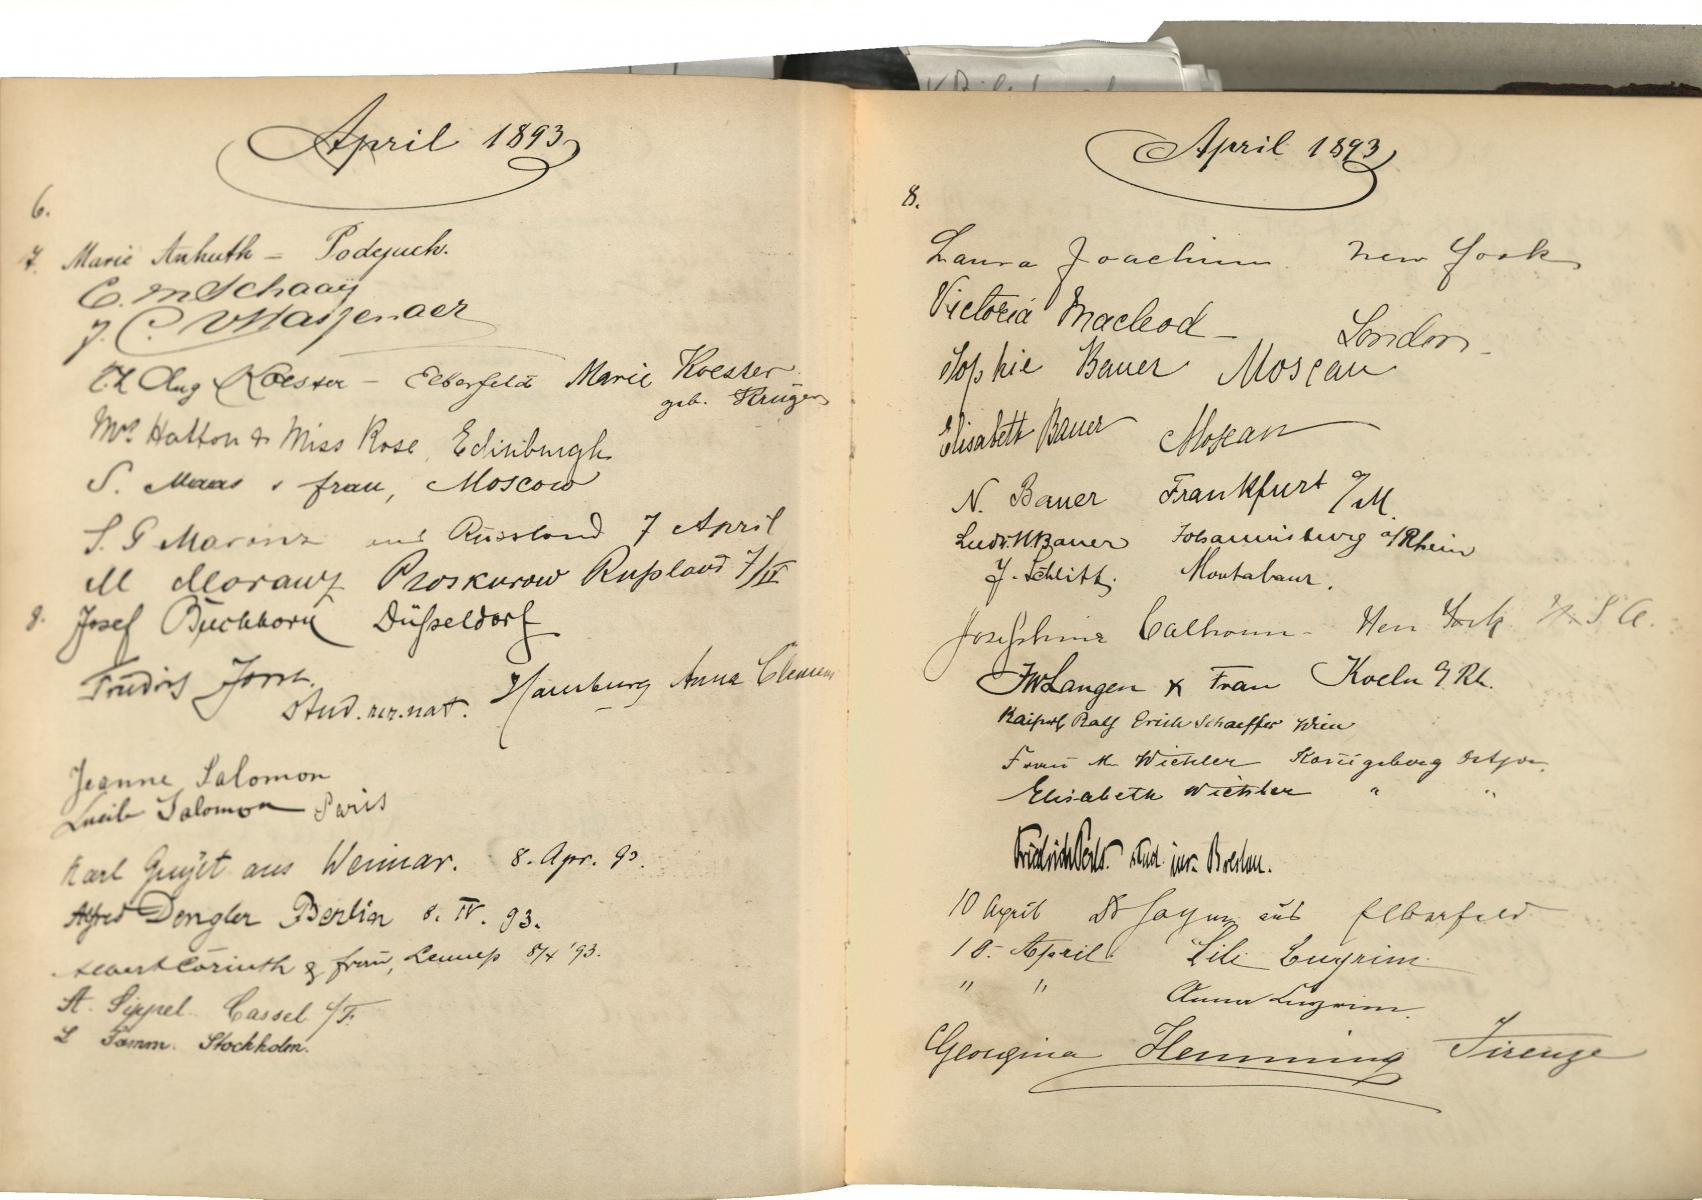 April 1893
6.
7. Marie Anhuth – Podejuch.
E. M Schaaij
J. C. v Wassenaer
Aug Koester – Elberfeld Marie Koester
geb. Krüger
Mrs Hatton & Miss Rose, Edinburgh
S. Maas & frau, Moscow
S. G Maranz aus Russland 7 April
M Moranz Proskurow Rußland 7/IV
8. Josef Buchhorn Düsseldorf
stud. rer. nat. Hamburg Anna Clemens
Jeanne Salomon
Lucile Salomon Paris
Karl Guyet aus Weimar. 8. Apr. 93.
Alfred Dengler Berlin 8. IV. 93.
Albert Corinth & frau, Lennep 8/4 '93.
A. Sippel Cassel
L Tamm. Stockholm.
April 1893
8.
Laura Joachim New York
Victoria Macleod – London –
Sophie Bauer Moscau
Elisabett Bauer Moscau
N. Bauer Frankfurt a/M.
Ludw. Bauer Johannisburg a/Rhein
J. Schlitt. Montabaur.
Josephine Calhoun – New York U S A.
JW Langen & Frau Koeln a/Rh.
Ralf Erich Schaeffer Wien
Frau M Wichler Königsberg Ostpr.
Elisabeth Wichler " "
Friedrich stud. jur. Breslau.
10 April Dr aus Elberfeld
10. April. Lili Luyrim
" " Anna Luyrim.
Georgina Hemming Firenze